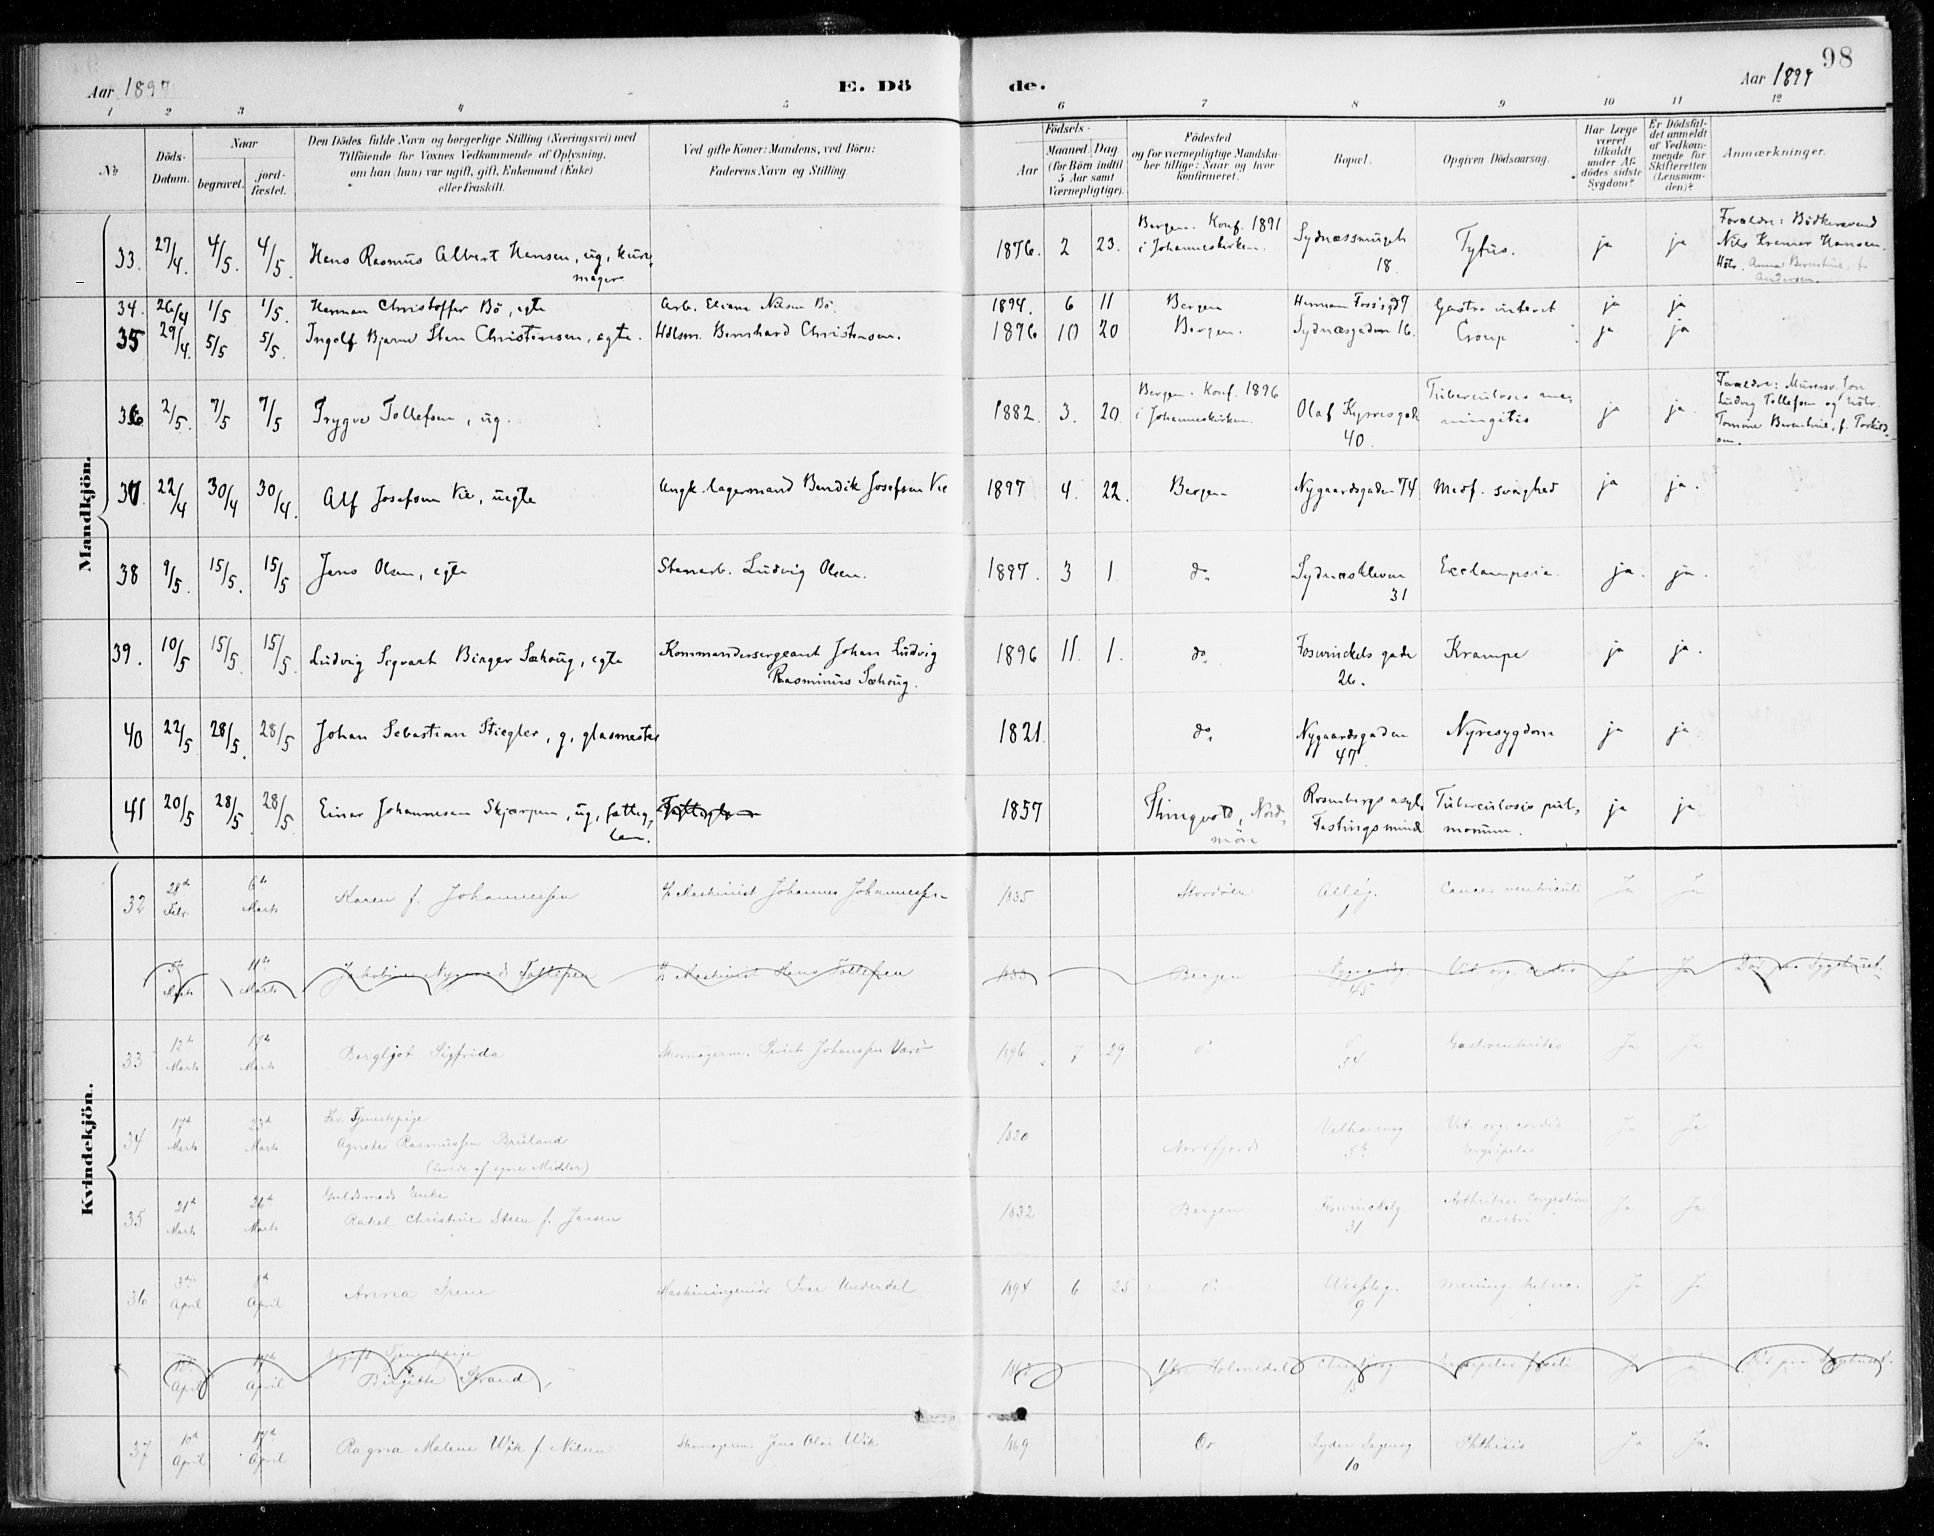 98
Aar 1897 E. Dö de. Aar 1897
1 2 3 4 5 6 7 8 9 10 11 12
No
Döds-Datum.
Naar
begravet.
jord-fæstet.
Den Dödes fulde Navn og borgerlige Stilling (Næringsvei) med
Tilföiende for Voxnes Vedkommende af Oplysning,
om han (hun) var ugift, gift, Enkemand (Enke)
eller fraskilt.
Ved gifte Koner: Mandens, ved Börn:
Faderens Navn og Stilling.
Födsels-
Aar
Maaned Dag
(for Börn indtil
5 Aar samt
Værnepligtige).
Födested
og for værnepligtige Mandska-
ber tillige: Naar og hvor
konfirmeret.
Bopæl.
Opgiven Dödsaarsag.
Har Læge
været
tilkaldt
under Af-
dödes sidste
Sygdom?
Er Dödsfal-
det anmeldt
af Vedkom-
mende for
Skifteretten
(Lensman-
den)?
Anmærkninger.
Mandkjön.
33. 27/4. 4/5. 4/5. Hans Rasmus Albert Hansen, ug, kur-
mager 1876. 2 23. Bergen. Konf. 1891
i Johanneskirken. Sydnæssmuget
18. Tyfus. ja ja Forældre: Bödkersvend
Nils Kremer Hansen.
Hstr. Anna Berentine, f.
Andersen
34. 26/4 1/5 1/5. Herman Christoffer Bö, egte Arb. Eliane Nilsen Bö. 1894. 6 11 Bergen Herman Foss'sgd 7 Gastro interit ja ja
35 29/4. 5/5 5/5. Ingolf Bjarne Sten Christensen, egte. Hdlsm. Bernhard Christensen. 1896 10 20 Bergen. Sydnæsgaden 16. Croup ja ja
36. 2/5. 7/5 7/5 Trygve Tollefsen, ug. 1882. 3. 20. Bergen. Konf. 1896
i Johanneskirken. Olaf Kyrresgade
40. Tuberculosis me-
ningitis ja ja. Forældre: Murersv.
Ludvig Tollefsen og Hstr.
Tomine Berentine, f. Torkils-
sen.
37. 22/4 30/4 30/4. Alf Josefsen Vie, uegte Ungk. lagermand Bendik Josefsen Vie 1897 4. 22. Bergen Nygaardsgaden 74 Medf. svaghed ja ja.
38 9/5. 15/5. 15/5 Jens Olsen, egte Stenarb. Ludvig Olsen. 1897. 3 1. do. Sydnæskleven
31 Ecclampsia. ja. ja.
39. 10/5 15/5. 15/5. Ludvig Sigvart Birger Sæhoug, egte Kommandersergeant Johan Ludvig
Rasminus Sæhoug. 1896 11. 1. do. Foswinckels gade
26. Krampe ja ja.
40 22/5 28/5. 28/5 Johan Sebastian Stiegler, g, glasmester 1821. do. Nygaardsgaden
47 Nyresygdom ja ja.
41 20/5 28/5. 28/5. Einar Johannesen Skjærpen, ug, fattig-
lem. 1857 Thingvold, Nord-
möre Rosenbergs asyl,
Festningsminde Tuberculosis pul-
monum. ja ja.
Kvindekjön.
32 28de
Febr. 6te
Marts Karen f. Johannessen Maskinist Johannes Johannessen 1835 Stordöen Alleg.
1 Cancer ventriculi Ja Ja
5te
Marts 11te
Marts Jakobine Nygaard Tollefsen Maskinist Hans Tollefsen 1833 Bergen Nygaardsg
45 Vit. org. cordis Ja Ja Död paa Sygehuset.
33 12te
Marts 17de
Marts Bergljot Sigfrida Skomagerm. Johanssen 1896 7 29 do
54 Gastroenteritis Ja Ja
34 17de
Marts 23de
Marts fhv. Tjenestepige
Agnete Rasmussen Bruland
(levede af egne Midler) 1820 Nordfjord Welhavensg
5b Vit. org. cordis
Erysipelas Ja Ja
35 21de
Marts 26de
Marts Guldsmeds Enke
Rakel Christine Steen f. Jansen 1832 Bergen Foswinckelsg.
31 Arthritis. Congestion
cerebri Ja Ja
36 3die
April 8de
April Anna Irene Maskiningeniör Ivar Underdal 1894 6 25 do Wesselsg.
9 Mening. tuberc. Ja Ja
10de
April 17de
April Ugift Tjenestepige
Birgitte Strand Ytre Holmedal Christiesg
15 Erysipelas faciei Ja Ja Död paa Sygehuset.
37 10de
April 17de
April Ragna Malene Wik f. Nilsen Skomagerm. Jens Olai Wik 1869 Os Lyder Sagensg
10 Phthisis Ja Ja.